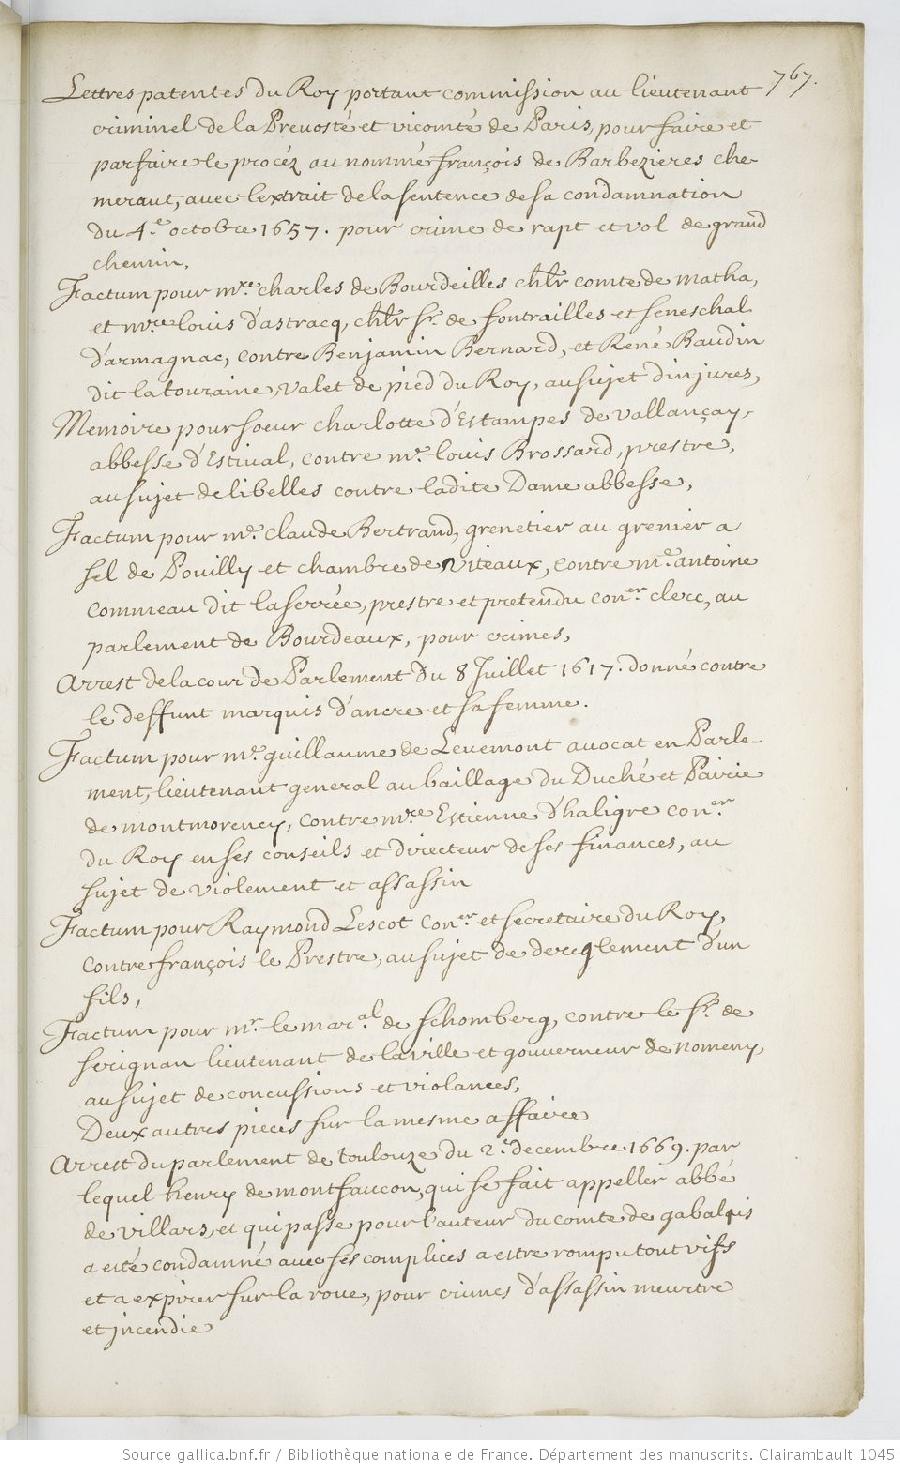 767.
Lettres patentes du Roy portant commission au lieutenant
criminel de la Prevosté et vicomté de Paris, pour faire et
parfaire le procéz au nommé françois de Barbezieres che-
meraut, avec l'extrait de la sentence de sa condamnation
du 4.e octobre 1657. pour crime de rapt et vol de grand
chemin,
Factum pour mre. charles de Bourdeilles chlr comte de matha,
et mre louis d'astracq, chlr sr. de fontrailles et seneschal
d'armagnac, contre Benjamin Bernard, et René Baudin
dit la touraine, valet de pied du Roy, au sujet d'injures,
Memoire pour soeur charlotte d'Estampes de vallançay,
abbesse d'Estival, contre mr. louis Brossard, prestre,
au sujet de libelles contre ladite Dame abbesse,
Factum pour me. claude Bertrand, grenetier au grenier a
sel de Pouilly et chambre de viteaux, contre me. antoine
commeau dit laserrée, prestre et pretendu coner. clerc, au
parlement de Bourdeaux, pour crimes,
Arrest de la cour de Parlement du 8 Juillet 1617. donné contre
le deffunt marquis d'ancre et sa femme.
Factum pour me. guillaume de Levemont avocat en Parle-
ment, lieutenant general au baillage du Duché et Pairie
de montmorency, contre mre Estienne d'haligre coner.
du Roy en ses conseils et directeur de ses finances, au
sujet de violement et assassin
Factum pour Raymond Lescot coner. et secretaire du Roy,
contre françois le Prestre, au sujet de dereglement d'un
fils,
Factum pour mr. le maral. de schomberg, contre le sr. de
serignan lieutenant de la ville et gouverneur de nomeny,
au sujet de concussions et violances,
Deux autres pieces sur la mesme affaire
Arrest du parlement de toulouze du 2.e decembre 1669. par
lequel henry de montfaucon, qui se fait appeller abbé
de villars, et qui passe pour l'auteur du comte de gabalis
a esté condamné avec ses complices a estre rompu tout vifs
et a expirer sur la roue, pour crimes d'assassin meurtre
et incendie
Source gallica.bnf.fr / Bibliothèque nationale de France. Département des manuscrits. Clairambault 1045